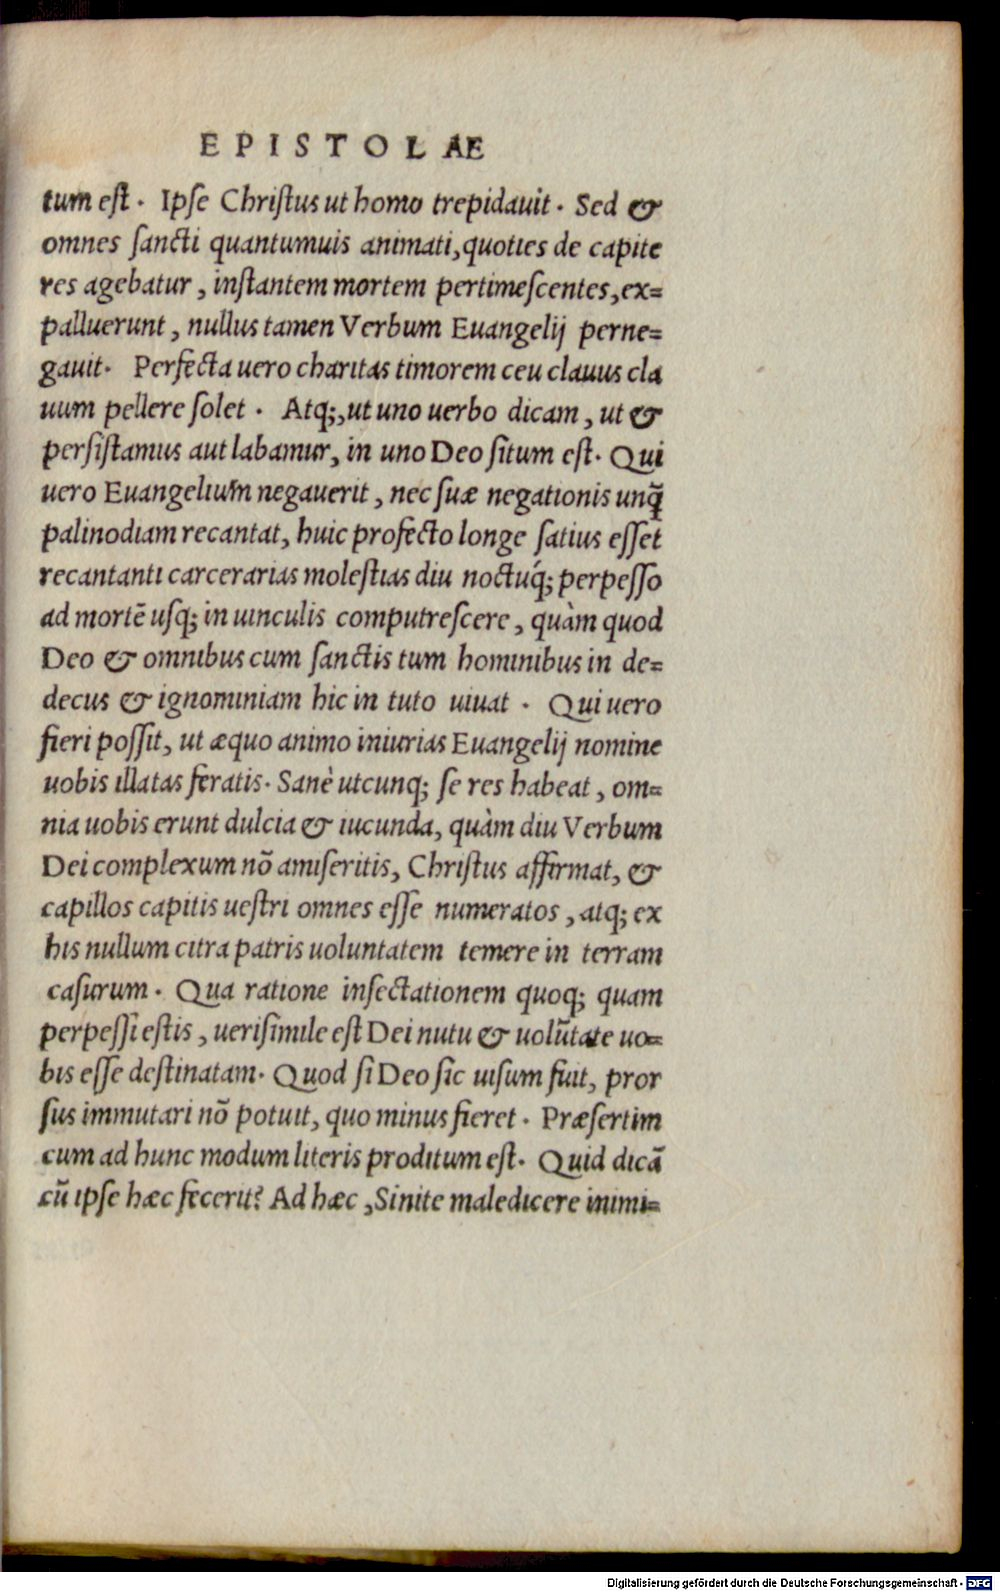 EPISTOLAE
tum est. Ipse Christus ut homo trepidauit. Sed &
omnes sancti quantumuis animati, quoties de capite
res agebatur, instantem mortem pertimescentes, ex=
palluerunt, nullus tamen Verbum Euangelij perne=
gauit. Perfecta uero charitas timorem ceu clauus cla
uum pellere solet. Atq;, ut uno uerbo dicam, ut &
persistamus aut labamur, in uno Deo situm est. Qui
uero Euangelium negauerit, nec suæ negationis unq̃
palinodiam recantat, huic profecto longe satius esset
recantanti carcerarias molestias diu noctuq́; perpesso
ad mortē usq; in uinculis computrescere, quàm quod
Deo & omnibus cum sanctis tum hominibus in de=
decus & ignominiam hic in tuto uiuat. Qui uero
fieri possit, ut æquo animo iniurias Euangelij nomine
uobis illatas feratis. Sanè utcunq; se res habeat, om=
nia uobis erunt dulcia & iucunda, quàm diu Verbum
Dei complexum nō amiseritis, Christus affirmat, &
capillos capitis uestri omnes esse numeratos, atq; ex
his nullum citra patris uoluntatem temere in terram
casurum. Qua ratione insectationem quoq; quam
perpessi estis, uerisimile est Dei nutu & uolūtate uo=
bis esse destinatam. Quod si Deo sic uisum fuit, pror
sus immutari nō potuit, quo minus fieret. Præsertim
cum ad hunc modum literis proditum est. Quid dicā
cū ipse hæc fecerit? Ad hæc, Sinite maledicere inimi=
Digitalisierung gefördert durch die Deutsche Forschungsgemeinschaft - DFG